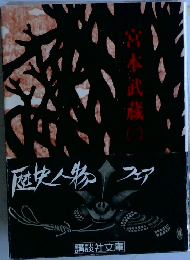 宮本武蔵(一)
歴史人物フェア
講談社文庫